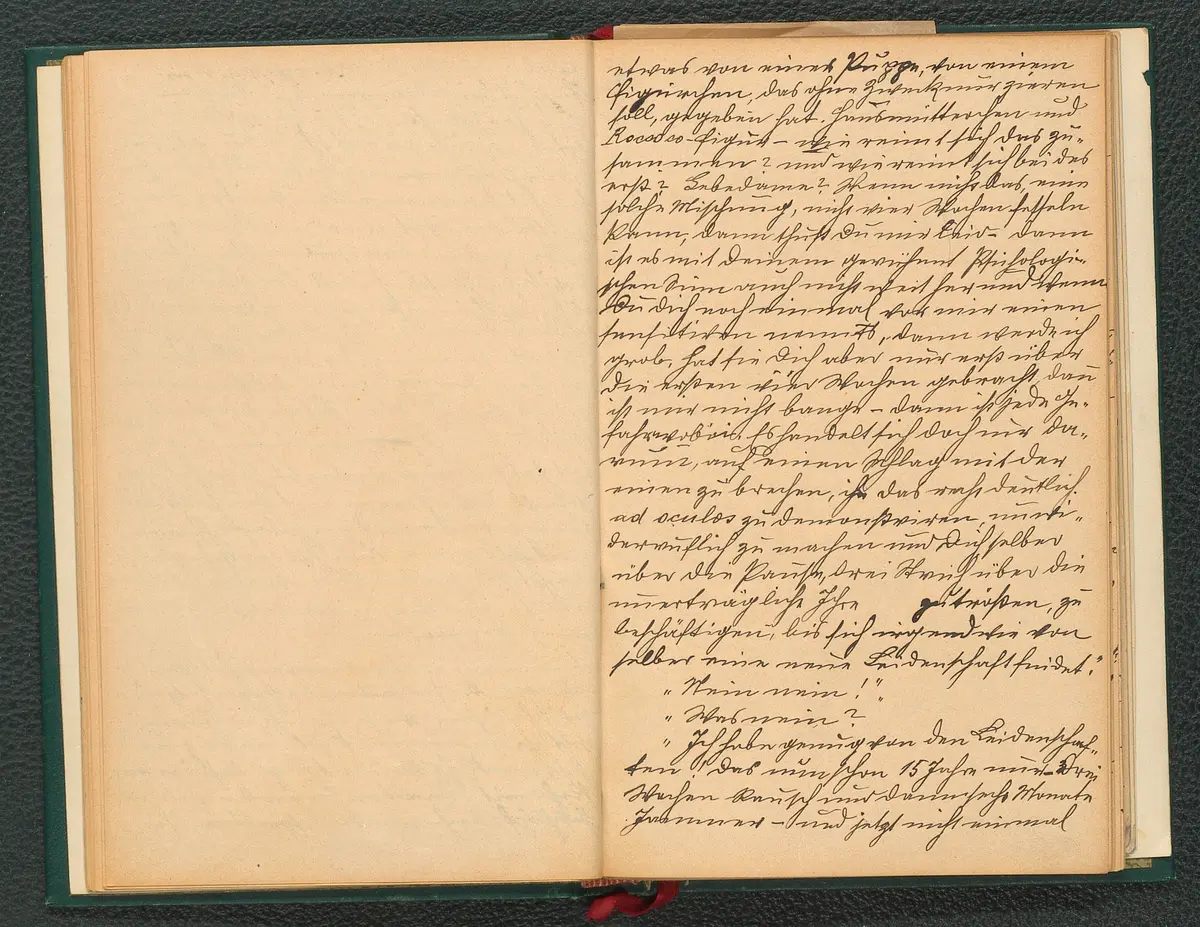 etwas von einer Puppe, von einem
Figürchen, das ohne Zweck nur zieren
soll, gegeben hat. Hausmütterchen und
Rococo-Figur – wie reimt sich das zu-
sammen? und wie reimt sich beides
erst? Lebedame? Wenn nicht das, eine
solche Mischung, nicht vier Wochen fesseln
kann, dann thust Du mir leid – dann
ist es mit Deinem gerühmt Psichologi-
schen Sinn auch nicht weit her und wenn
Du Dich noch einmal vor mir einen
sensitiven nennst, dann werde ich
grob. Hat sie Dich aber nur erst über
die ersten vier Wochen gebracht, dann
ist mir nicht bange – dann ist jede Ge-
fahr vorbei. Es handelt sich doch nur da-
rum, auf einen Schlag mit der
einen zu brechen, ihr das recht deutlich
ad oculos zu demonstriren, unwi-
derruflich zu machen und Dich selber
über die Pause, drei Strich über die
unerträgliche Ihre zu trösten, zu
beschäftigen, bis sich irgendwie von
selber eine neue Leidenschaft findet."
"Nein nein!"
"Was nein?
"Ich habe genug von den Leidenschaf-
ten! Das nun schon 15 Jahre nur – Drei
Wochen Rausch und dann sechs Monate
Jammer – und jetzt nicht einmal